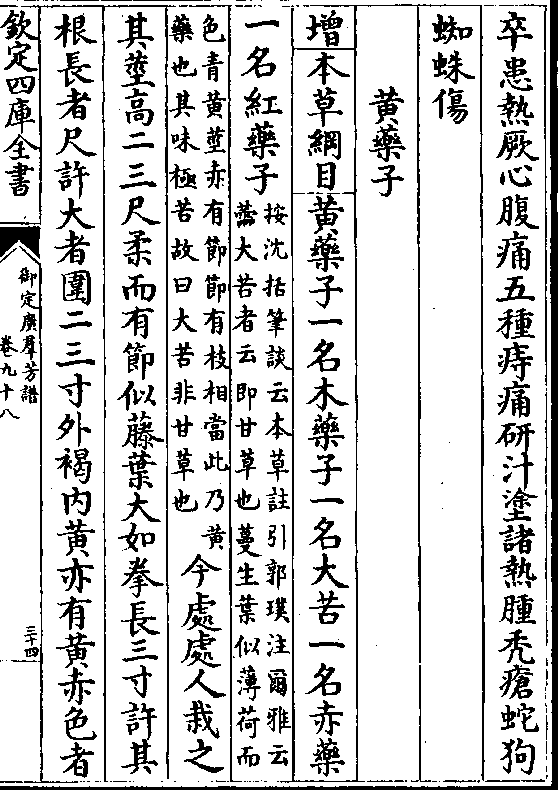 卒患熱厥心腹痛五種痔痛研汁塗諸熱腫禿瘡蛇狗
蜘蛛傷
黄藥子
增本草綱目黄藥子一名木藥子一名大苦一名赤藥
一名紅藥子
按沈括筆談云本草註引郭璞注爾雅云
蘦大苦者云即甘草也蔓生葉似薄荷而
色青黄莖赤有節節有枝相當此乃黄
藥也其味極苦故曰大苦非甘草也
今處處人栽之
其莖高二三尺柔而有節似藤葉大如拳長三寸許其
根長者尺許大者圍二三寸外褐内黄亦有黄赤色者
欽定四庫全書
御定廣羣芳譜
卷九十八
三十四